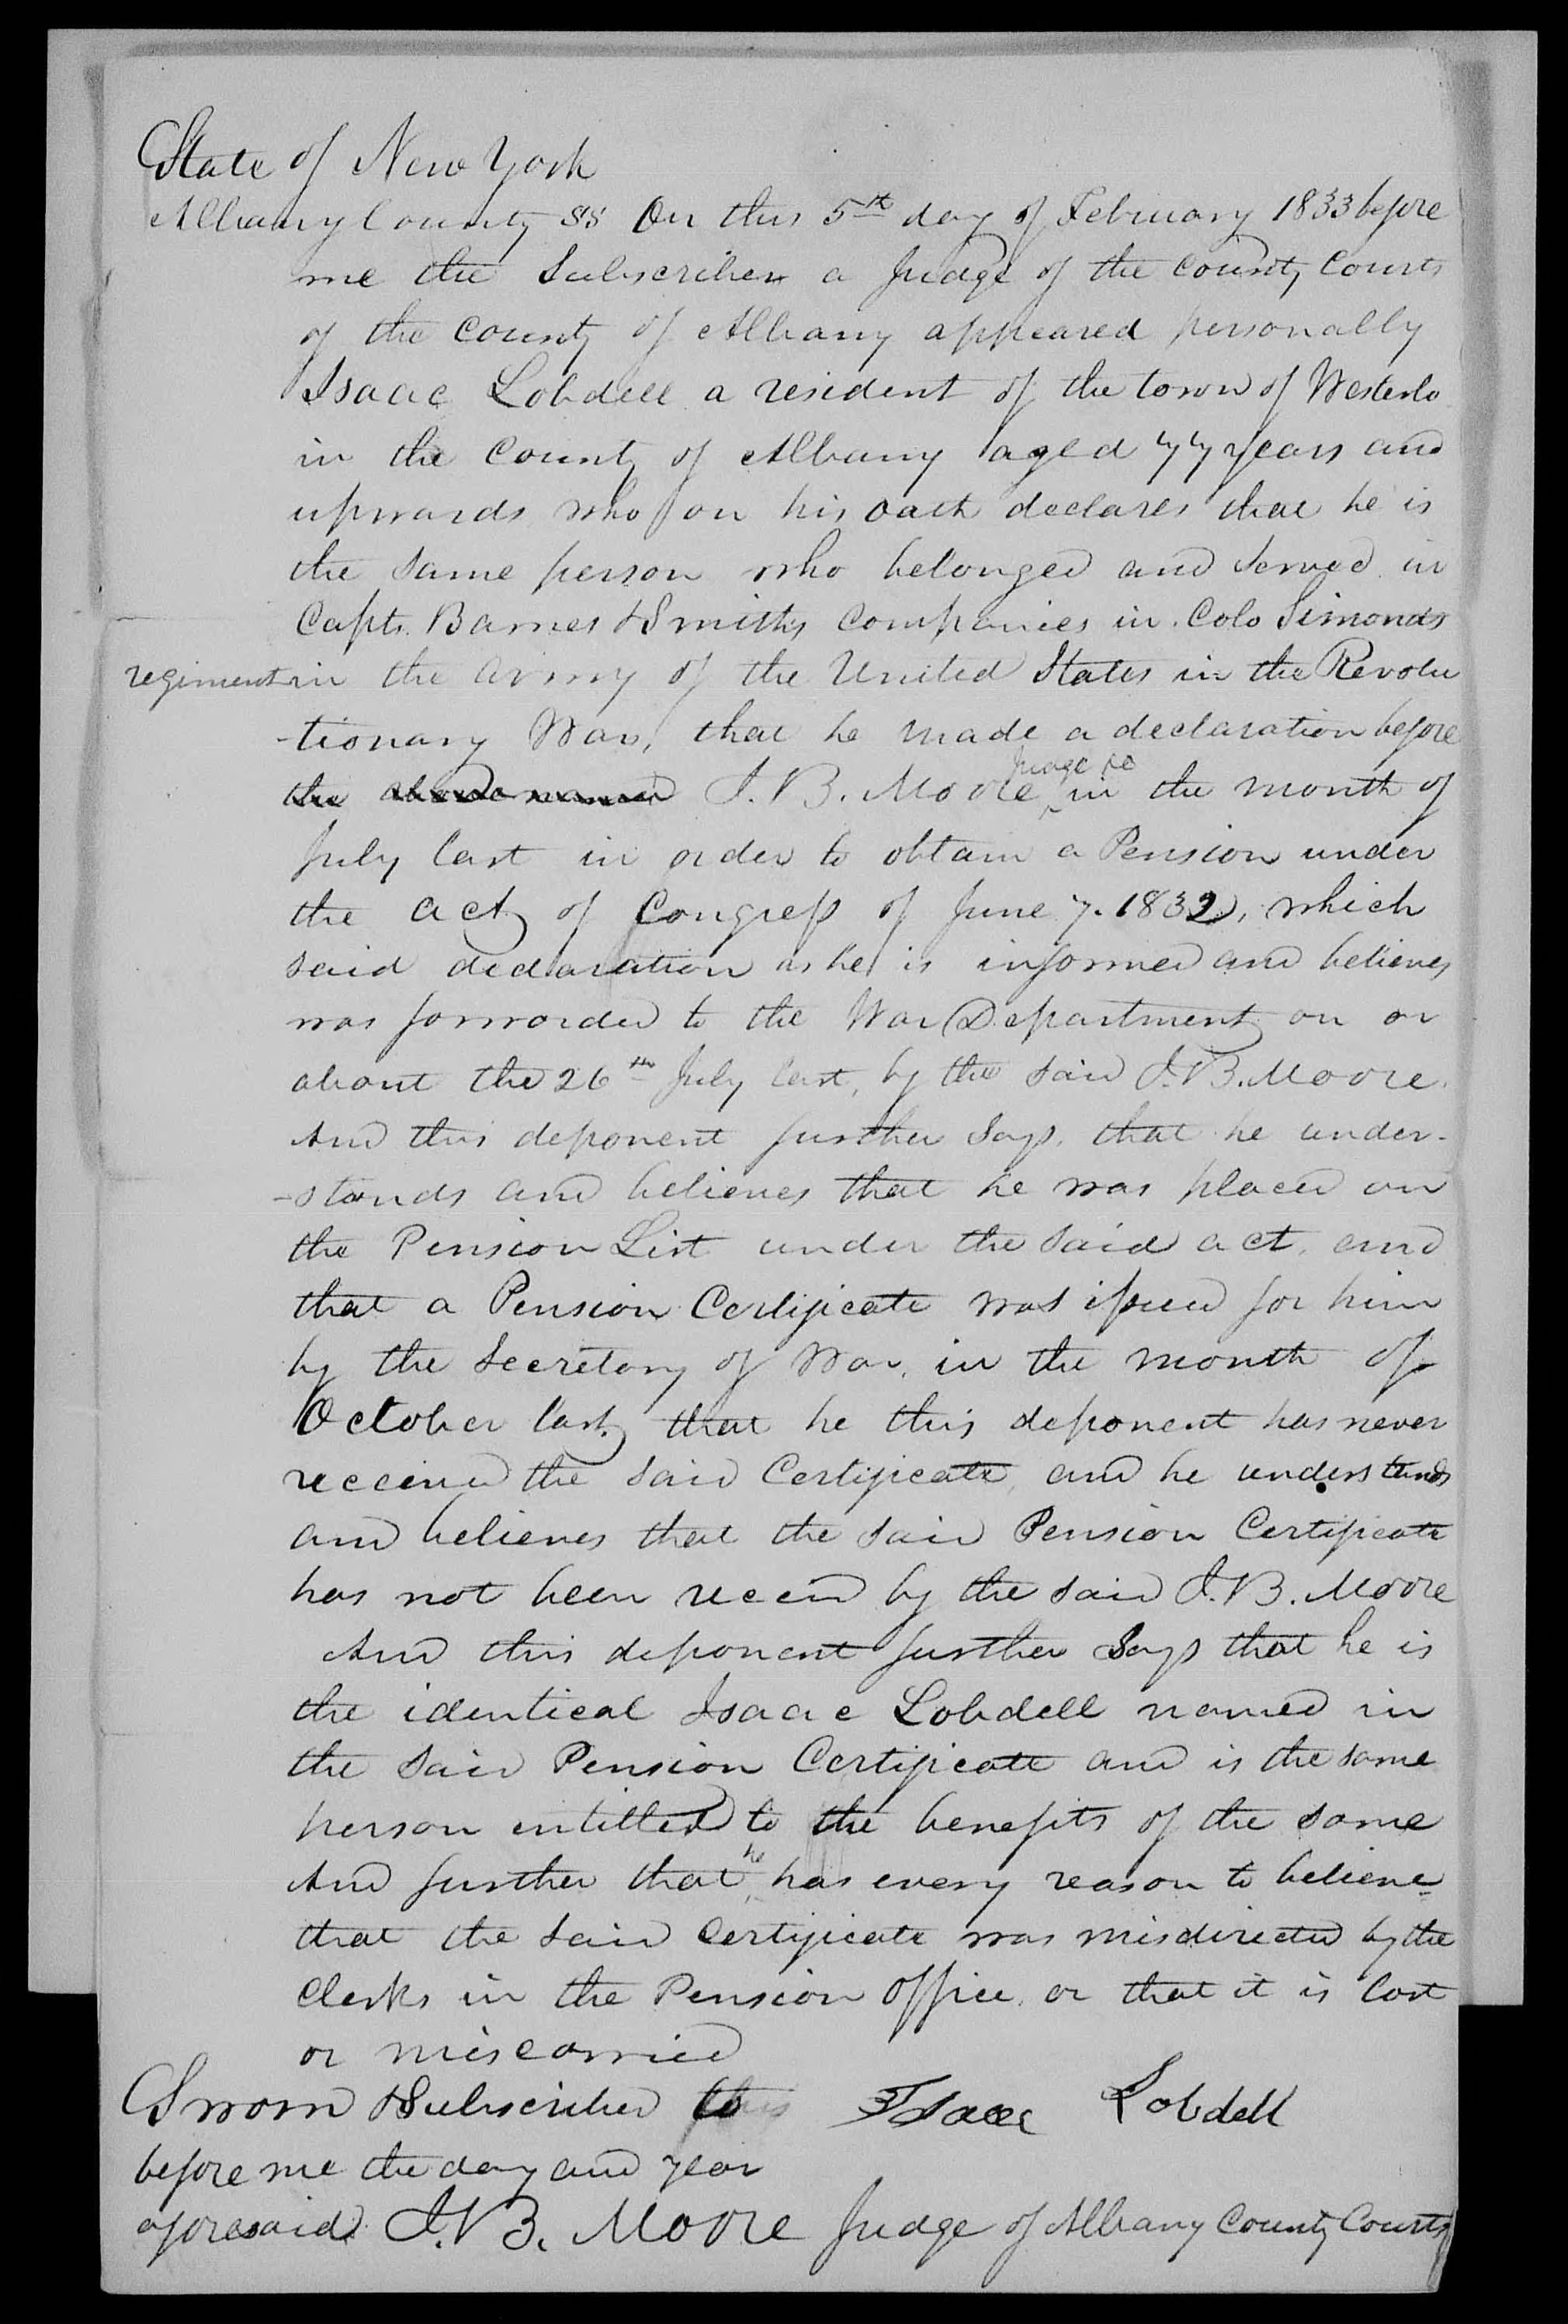 State of New York
Albany County SS On this 5th day of February 1833 before
me the Subscriber a Judge of the County Courts
of the County of Albany appeared personally
Isaac Lobdell a resident of the town of Westerlo
in the County of Albany aged 77 years and
upwards who on his oath declares that he is
the same person who belonged and served in
Capts. Barnes & Smiths Companies in Colo Simonds
regiment in the Army of the United States in the Revolu
-tionary War, that he made a declaration before
the above named J. B. Moore Judge &c in the month of
July last in order to obtain a Pension under
the act of Congress of June 7. 1832, which
said declaration as he is informed and believes
was forwarded to the War Department on or
about the 26th July last, by the said J. B. Moore.
And this deponent further Says, that he under-
-stands and believes that he was placed on
the Pension List under the said act, and
that a Pension Certificate was issued for him
by the Secretary of War, in the month of
October last, that he this deponent has never
received the said Certificate, and he understands
and believes that the said Pension Certificate
has not been receivd by the said J. B. Moore
And this deponent further Says that he is
the identical Isaac Lobdell named in
the said Pension Certificate and is the same
person entitled to the benefits of the same
And further that he has every reason to believe
that the said Certificate was misdirected by the
Clerks in the Pension office, or that it is lost
or miscarried
Sworn & Subscribed to Isaac Lobdell
before me the day and year
aforesaid J. B. Moore Judge of Albany County Courts